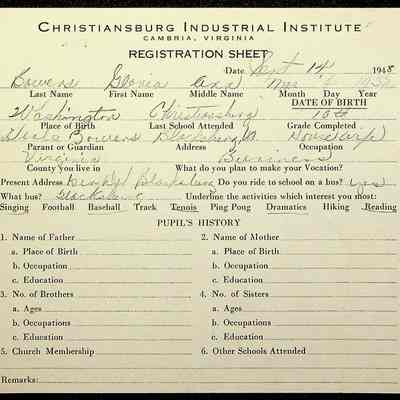 CHRISTIANSBURG INDUSTRIAL INSTITUTE
CAMBRIA, VIRGINIA
REGISTRATION SHEET
Date Sept 14 1948
Bowers Gloria Ann
Last Name First Name Middle Name Month Day Year
DATE OF BIRTH
Washington Christiansburg 10th
Place of Birth Last School Attended Grade Completed
Bowers Blacksburg, Va
Parent or Guardian Address Occupation
Virginia Business
County you live in What do you plan to make your Vocation?
Present Address Do you ride to school on a bus? yes
What bus? Underline the activities which interest you most:
Singing Football Baseball Track Tennis Ping Pong Dramatics Hiking Reading
PUPIL'S HISTORY
1. Name of Father 2. Name of Mother
a. Place of Birth a. Place of Birth
b. Occupation b. Occupation
c. Education c. Education
3. No. of Brothers 4. No. of Sisters
a. Ages a. Ages
b. Occupations b. Occupations
c. Education c. Education
5. Church Membership 6. Other Schools Attended
Remarks: